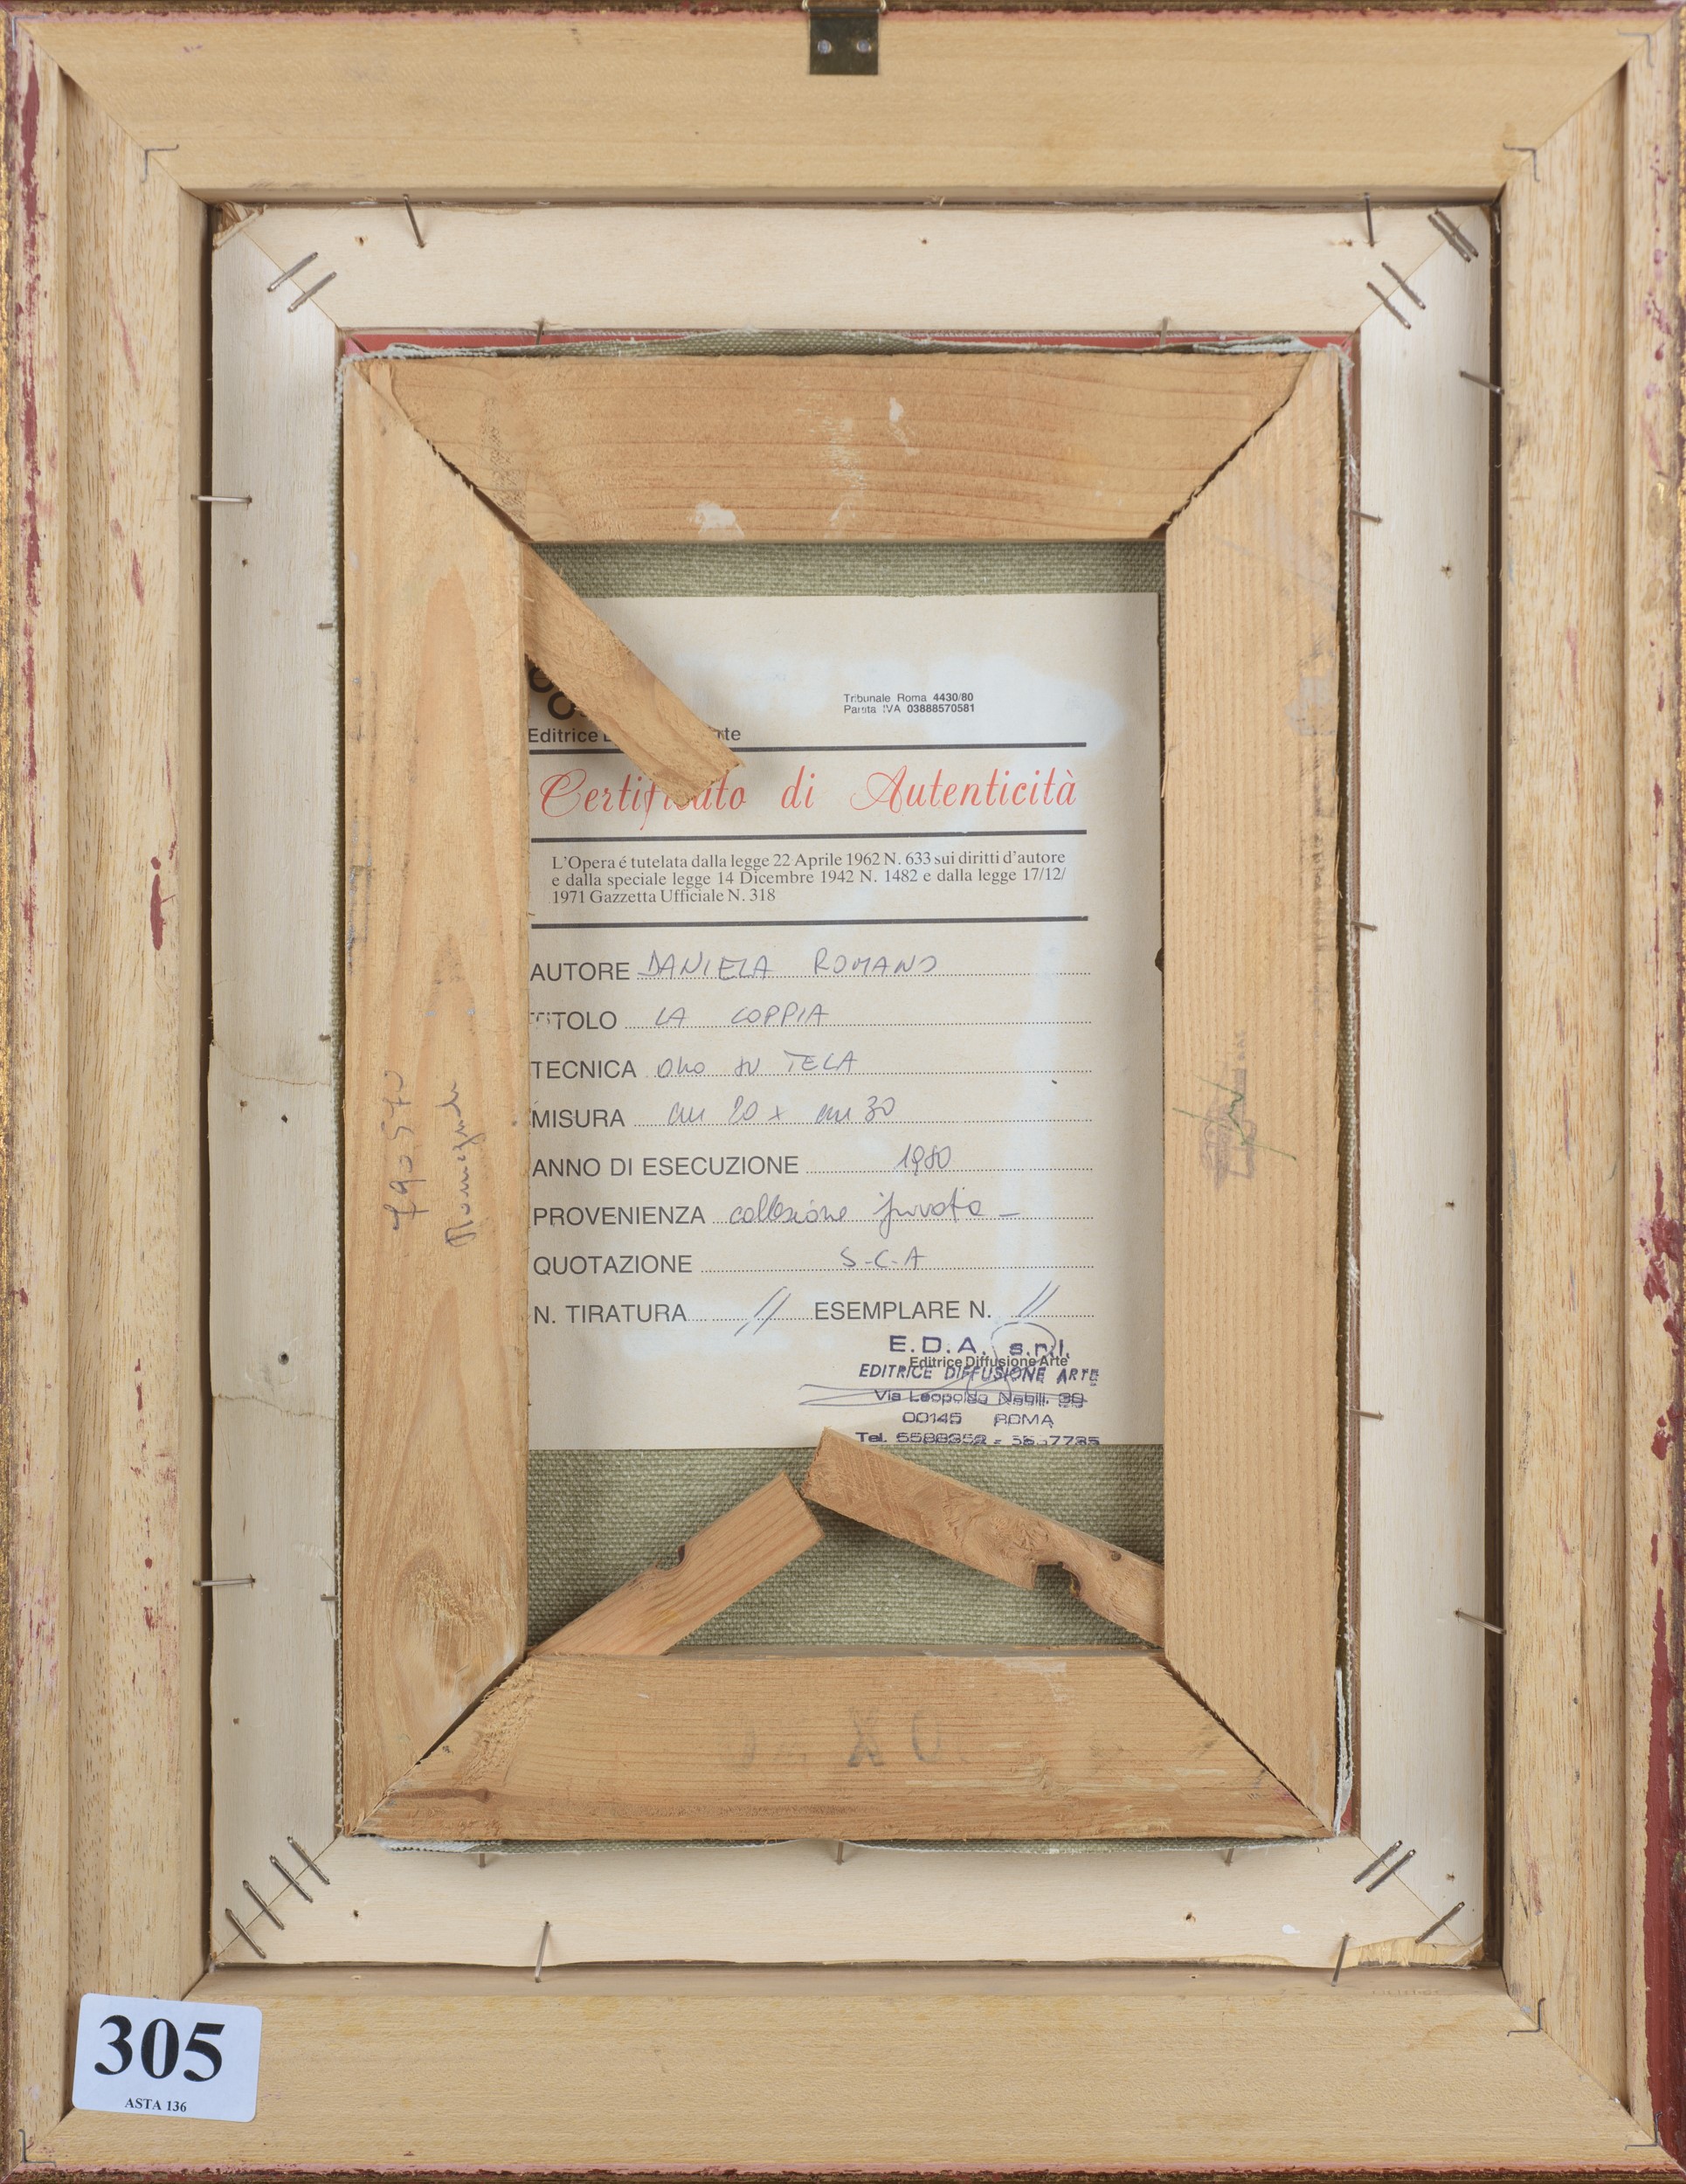 Tribunale Roma 4430/80
Partita IVA 03888570581
Editrice
Certificato di Autenticità
L'Opera é tutelata dalla legge 22 Aprile 1962 N. 633 sui diritti d'autore
e dalla speciale legge 14 Dicembre 1942 N. 1482 e dalla legge 17/12/
1971 Gazzetta Ufficiale N. 318
AUTORE DANIELA ROMANO
TITOLO LA COPPIA
TECNICA OLIO SU TELA
MISURA cm 20 x cm 30
ANNO DI ESECUZIONE 1980
PROVENIENZA collezione privata -
QUOTAZIONE S-C-A
N. TIRATURA // ESEMPLARE N. //
E.D.A. s.r.l.
Editrice Diffusione Arte
EDITRICE DIFFUSIONE ARTE
Via Leopoldo Nobili, 39
00145 ROMA
Tel.
790570
305
ASTA 136